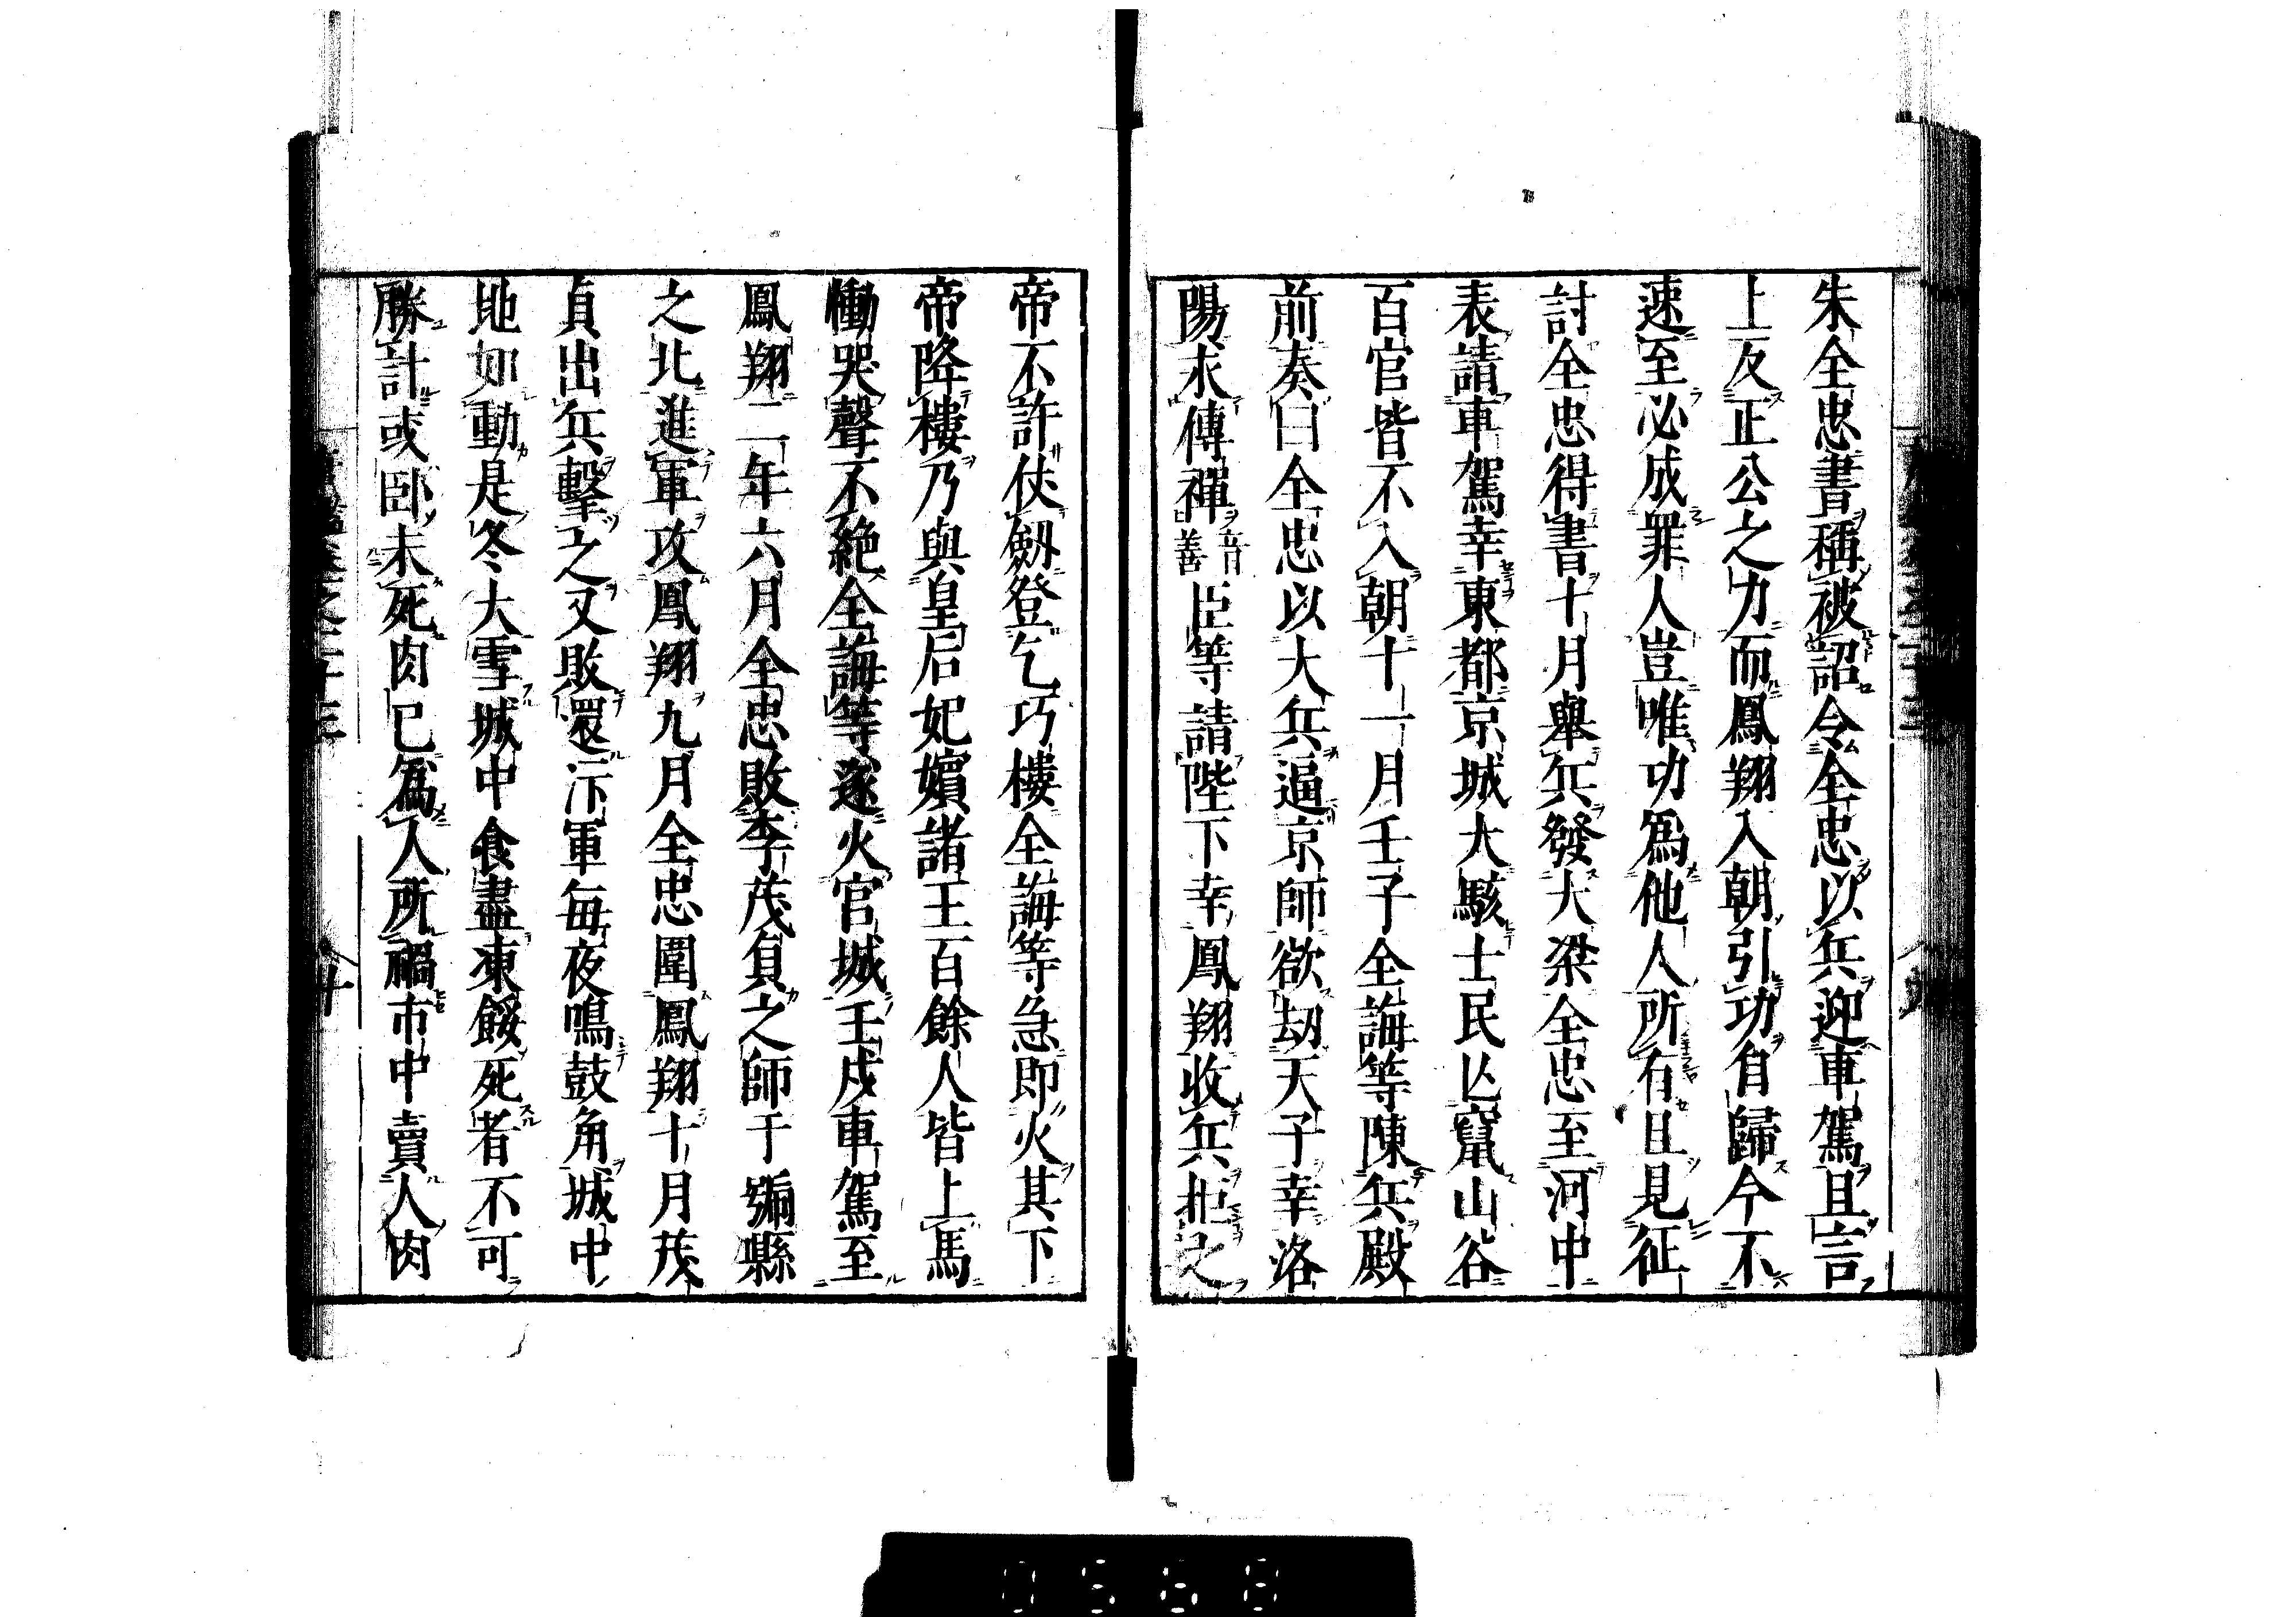 朱全忠書稱被詔令全忠以兵迎車駕且言
上反正公之力而鳳翔入朝引功自歸今不
速至必成罪人豈唯功爲他人所有且見征
討全忠得書十月舉兵發大梁全忠至河中
表請車駕幸東都京城大駭士民亡竄山谷
百官皆不入朝十一月壬子全誨等陳兵殿
前奏曰全忠以大兵逼京師欲劫天子幸洛
陽求傳禪音善臣等請陛下幸鳳翔收兵拒之
帝不許仗劔登乞巧樓全誨等急即火其下
帝降樓乃與皇后妃嬪諸王百餘人皆上馬
慟哭聲不絶全誨等遂火官城壬戌車駕至
鳳翔二年六月全忠敗李茂負之師于號縣
之北進軍攻鳳翔九月全忠圍鳳翔十月茂
貞出兵擊之又敗還汴軍每夜鳴鼓角城中
地如動是冬大雪城中食盡凍餒死者不可
勝計或卧未死肉已爲人所禍市中賣人肉